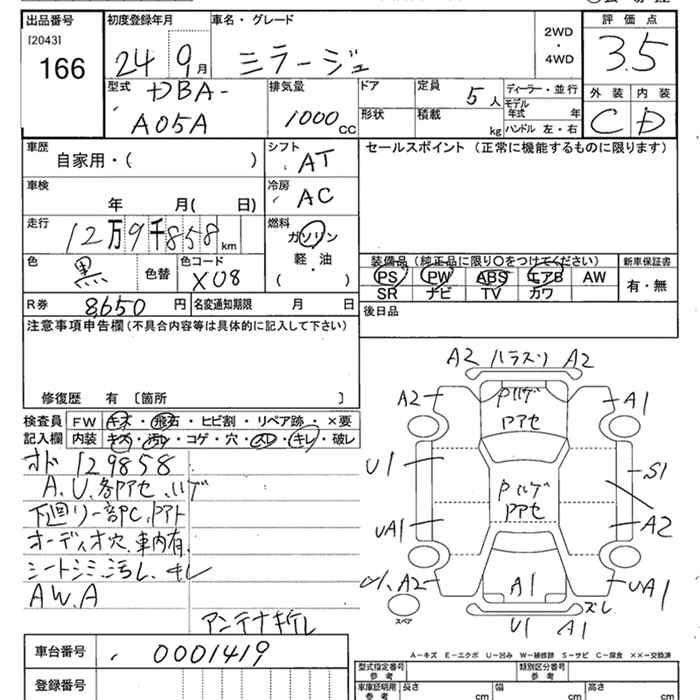 出品番号
[2043]
166
初度登録年月
24 9月
車名・グレード
ミラージュ
2WD
・
4WD
評価点
3.5
外装 内装
C D
型式
DBA-
A05A
排気量
1000 cc
ドア
形状
定員
5人
積載
kg
ディーラー・並行
モデル年式 年
ハンドル 左・右
車歴
自家用・( )
シフト
AT
セールスポイント (正常に機能するものに限ります)
車検
年 月( 日)
冷房
AC
走行
12万9千858km
燃料
ガソリン
軽・油
( )
色
黒
色替
色コード
X08
装備品 (純正品に限り〇をつけてください)
PS PW ABS エアB AW
SR ナビ TV カワ
新車保証書
有・無
R券 8,650円
名変通知期限 月 日
後日品
注意事項申告欄 (不具合内容等は具体的に記入して下さい)
修復歴 有 〔箇所 〕
検査員記入欄
FW キズ・飛石・ヒビ割・リペア跡・×要
内装 キズ・汚レ・コゲ・穴・スレ・キレ・破レ
オド 129858
A、U、各部アセ、ハゲ
下廻リ一部PC、Pアト
オーディオ穴、車内有、
シートシミ、汚レ、キレ
A W、A
アンテナキレ
A2 ハラスリ A2
A2
Pハゲ
Pアセ
A1
U1
S1
Pハゲ
Pアセ
UA1
A2
A2
A1
UA1
ズレ
スペア
U1 A1
車台番号
0001419
登録番号
A-キズ E-エクボ U-凹み W-補修跡 S-サビ C-腐食 ××-交換済
型式指定番号
参考
類別区分番号
参考
車庫証明用
参考
長さ cm
幅 cm
高さ cm